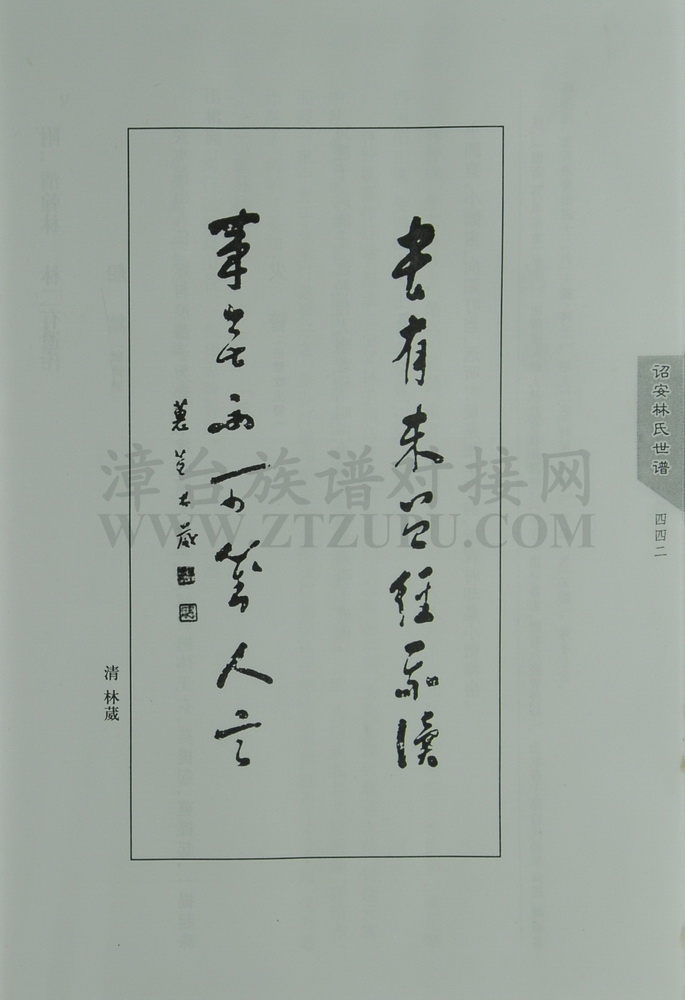 書有未曾經我讀
事無不可對人言
林葳
清 林葳
诏安林氏世谱
四四二
漳台族谱对接网
WWW.ZTZUPU.COM